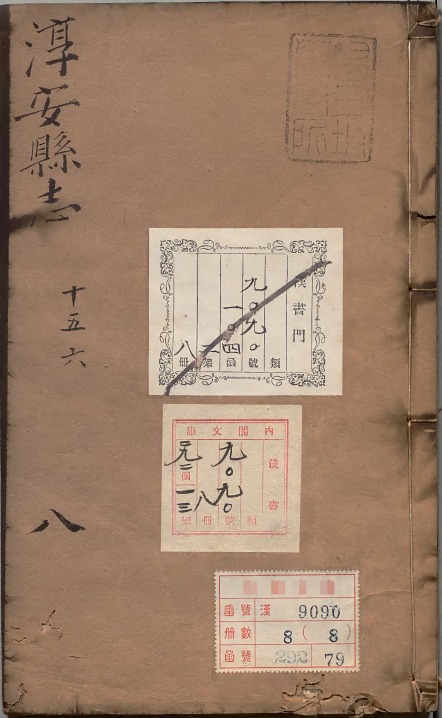 淳安縣志
十五六
八
漢書門
九〇九〇
一〇四
二
八
類
號
函
架
冊
內閣文庫
漢書
九〇九〇
八
類
號
冊
函
架
番號 漢 9090
冊數 8 (8)
函號 292 79